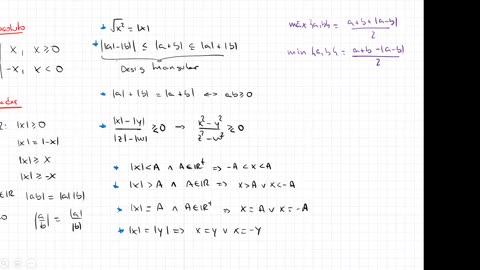 x, x ≥ 0
-x, x < 0
|x| ≥ 0
|x| = |-x|
|x| ≥ x
|x| ≥ -x
|ab| = |a||b|
|a/b| = |a|/|b|
√x² = |x|
||a|-|b|| ≤ |a+b| ≤ |a|+|b|
Desig triangular
|a|+|b| = |a+b| ⇔ ab ≥ 0
(|x|-|y|)/(|z|-|w|) ≥ 0 → (x²-y²)/(z²-w²) ≥ 0
|x| < A ∧ A ∈ ℝ⁺ ⇒ -A < x < A
|x| > A ∧ A ∈ ℝ ⇒ x > A ∨ x < -A
|x| = A ∧ A ∈ ℝ⁺ ⇒ x = A ∨ x = -A
|x| = |y| ⇒ x = y ∨ x = -y
máx {a,b} = (a+b+|a-b|)/2
min {a,b} = (a+b-|a-b|)/2